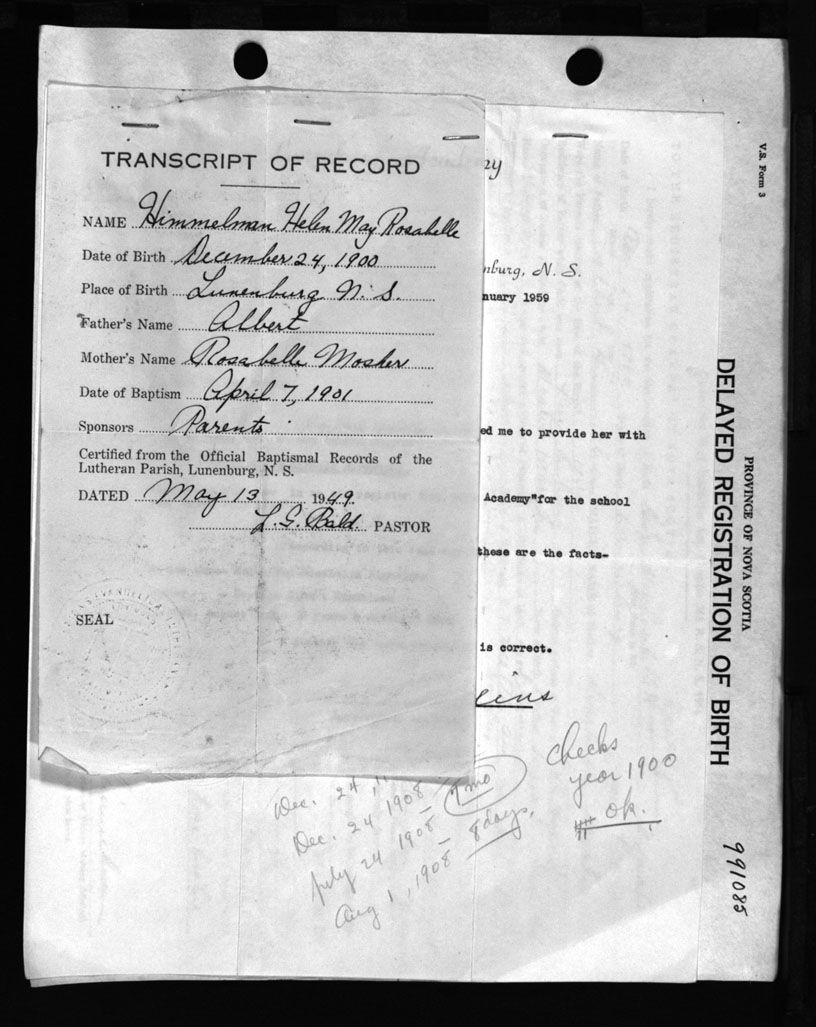 TRANSCRIPT OF RECORD
NAME Himmelman Helen May Rosabelle
Date of Birth December 24, 1900
Place of Birth Lunenburg N. S.
Father's Name Albert
Mother's Name Rosabelle Mosher
Date of Baptism April 7, 1901
Sponsors Parents
Certified from the Official Baptismal Records of the
Lutheran Parish, Lunenburg, N. S.
DATED May 13 1949.
L. G. Bald PASTOR
SEAL
my
nburg, N. S.
nuary 1959
ed me to provide her with
Academy"for the school
these are the facts-
is correct.
Dec. 24, "
Dec. 24 1908
July 24 1908 - 7 mo
Aug 1, 1908 - 8 days.
checks
year 1900
ok.
V.S. Form 3
PROVINCE OF NOVA SCOTIA
DELAYED REGISTRATION OF BIRTH
991085